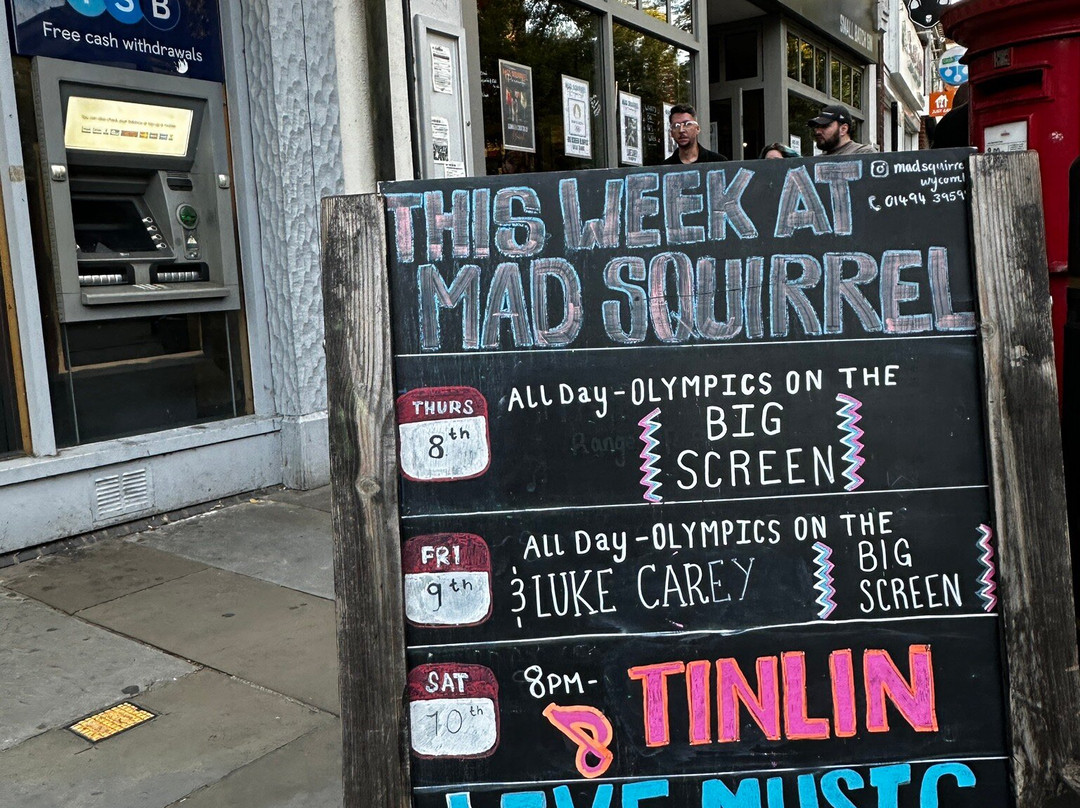 TSB
Free cash withdrawals
SMALL BATCH
THIS WEEK AT
MAD SQUIRREL
madsquirre
wycom
01494 3959
THURS
8th
All Day - OLYMPICS ON THE
BIG
SCREEN
FRI
9th
All Day - OLYMPICS ON THE
BIG
SCREEN
& LUKE CAREY
SAT
10th
8PM -
TINLIN
LIVE MUSIC